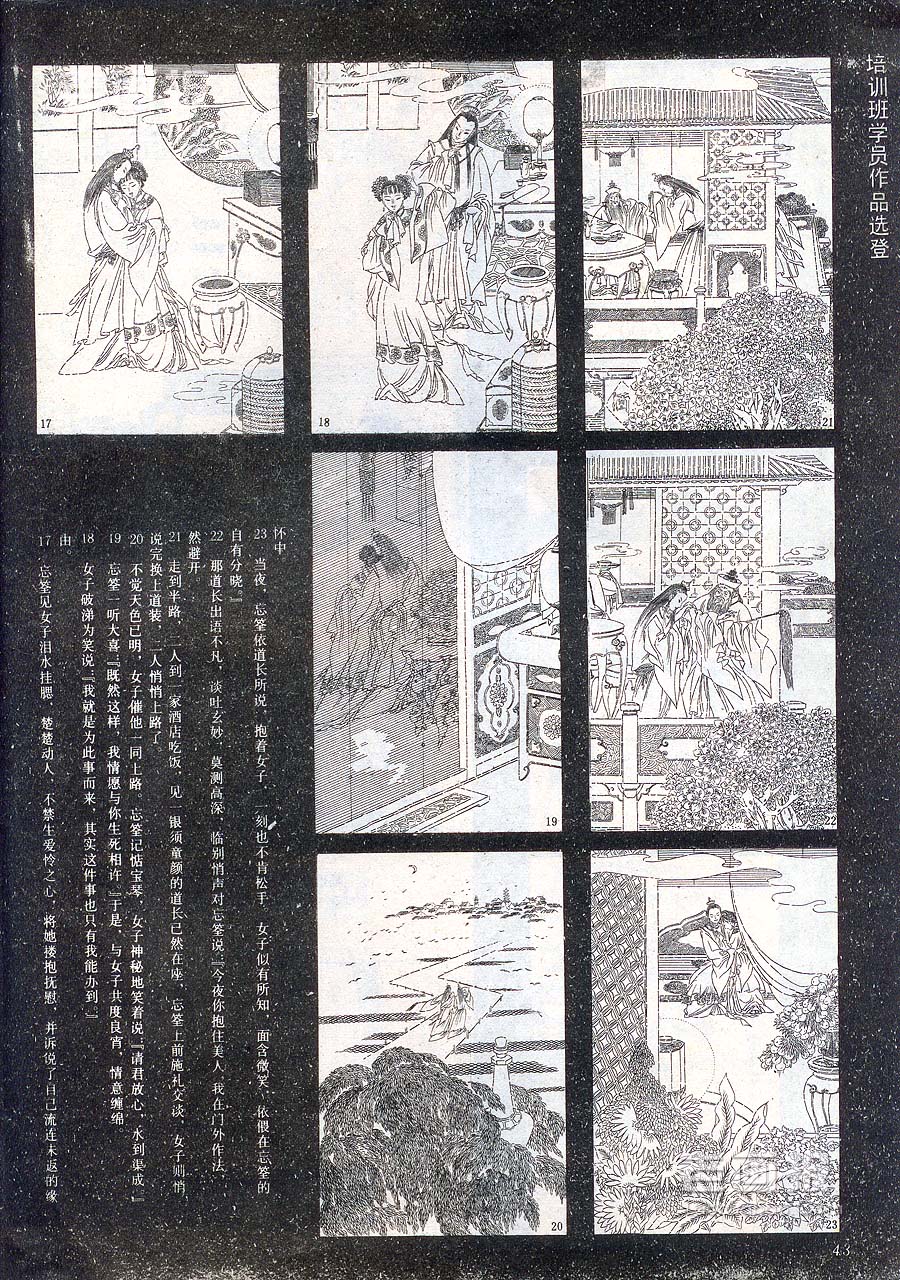 培训班学员作品选登
17
18
21
19
22
20
23
17 忘筌见女子泪水挂腮，楚楚动人，不禁生爱怜之心，将她搂抱抚慰，并诉说了自己流连未返的缘
由。
18 女子破涕为笑说『我就是为此事而来，其实这件事也只有我能办到。』
19 忘筌一听大喜『既然这样，我情愿与你生死相许』于是，与女子共度良宵，情意缠绵
20 不觉天色已明，女子催他一同上路 忘筌记惦宝琴，女子神秘地笑着说『请君放心，水到渠成』
说完换上道装，二人悄悄上路了
21 走到半路，二人到一家酒店吃饭，见一银须童颜的道长已然在座，忘筌上前施礼交谈，女子则悄
然避开
22 那道长出语不凡，谈吐玄妙，莫测高深，临别悄声对忘筌说『今夜你抱住美人，我在门外作法，
自有分晓。』
23 当夜，忘筌依道长所说，抱着女子，一刻也不肯松手，女子似有所知，面含微笑，依偎在忘筌的
怀中
43